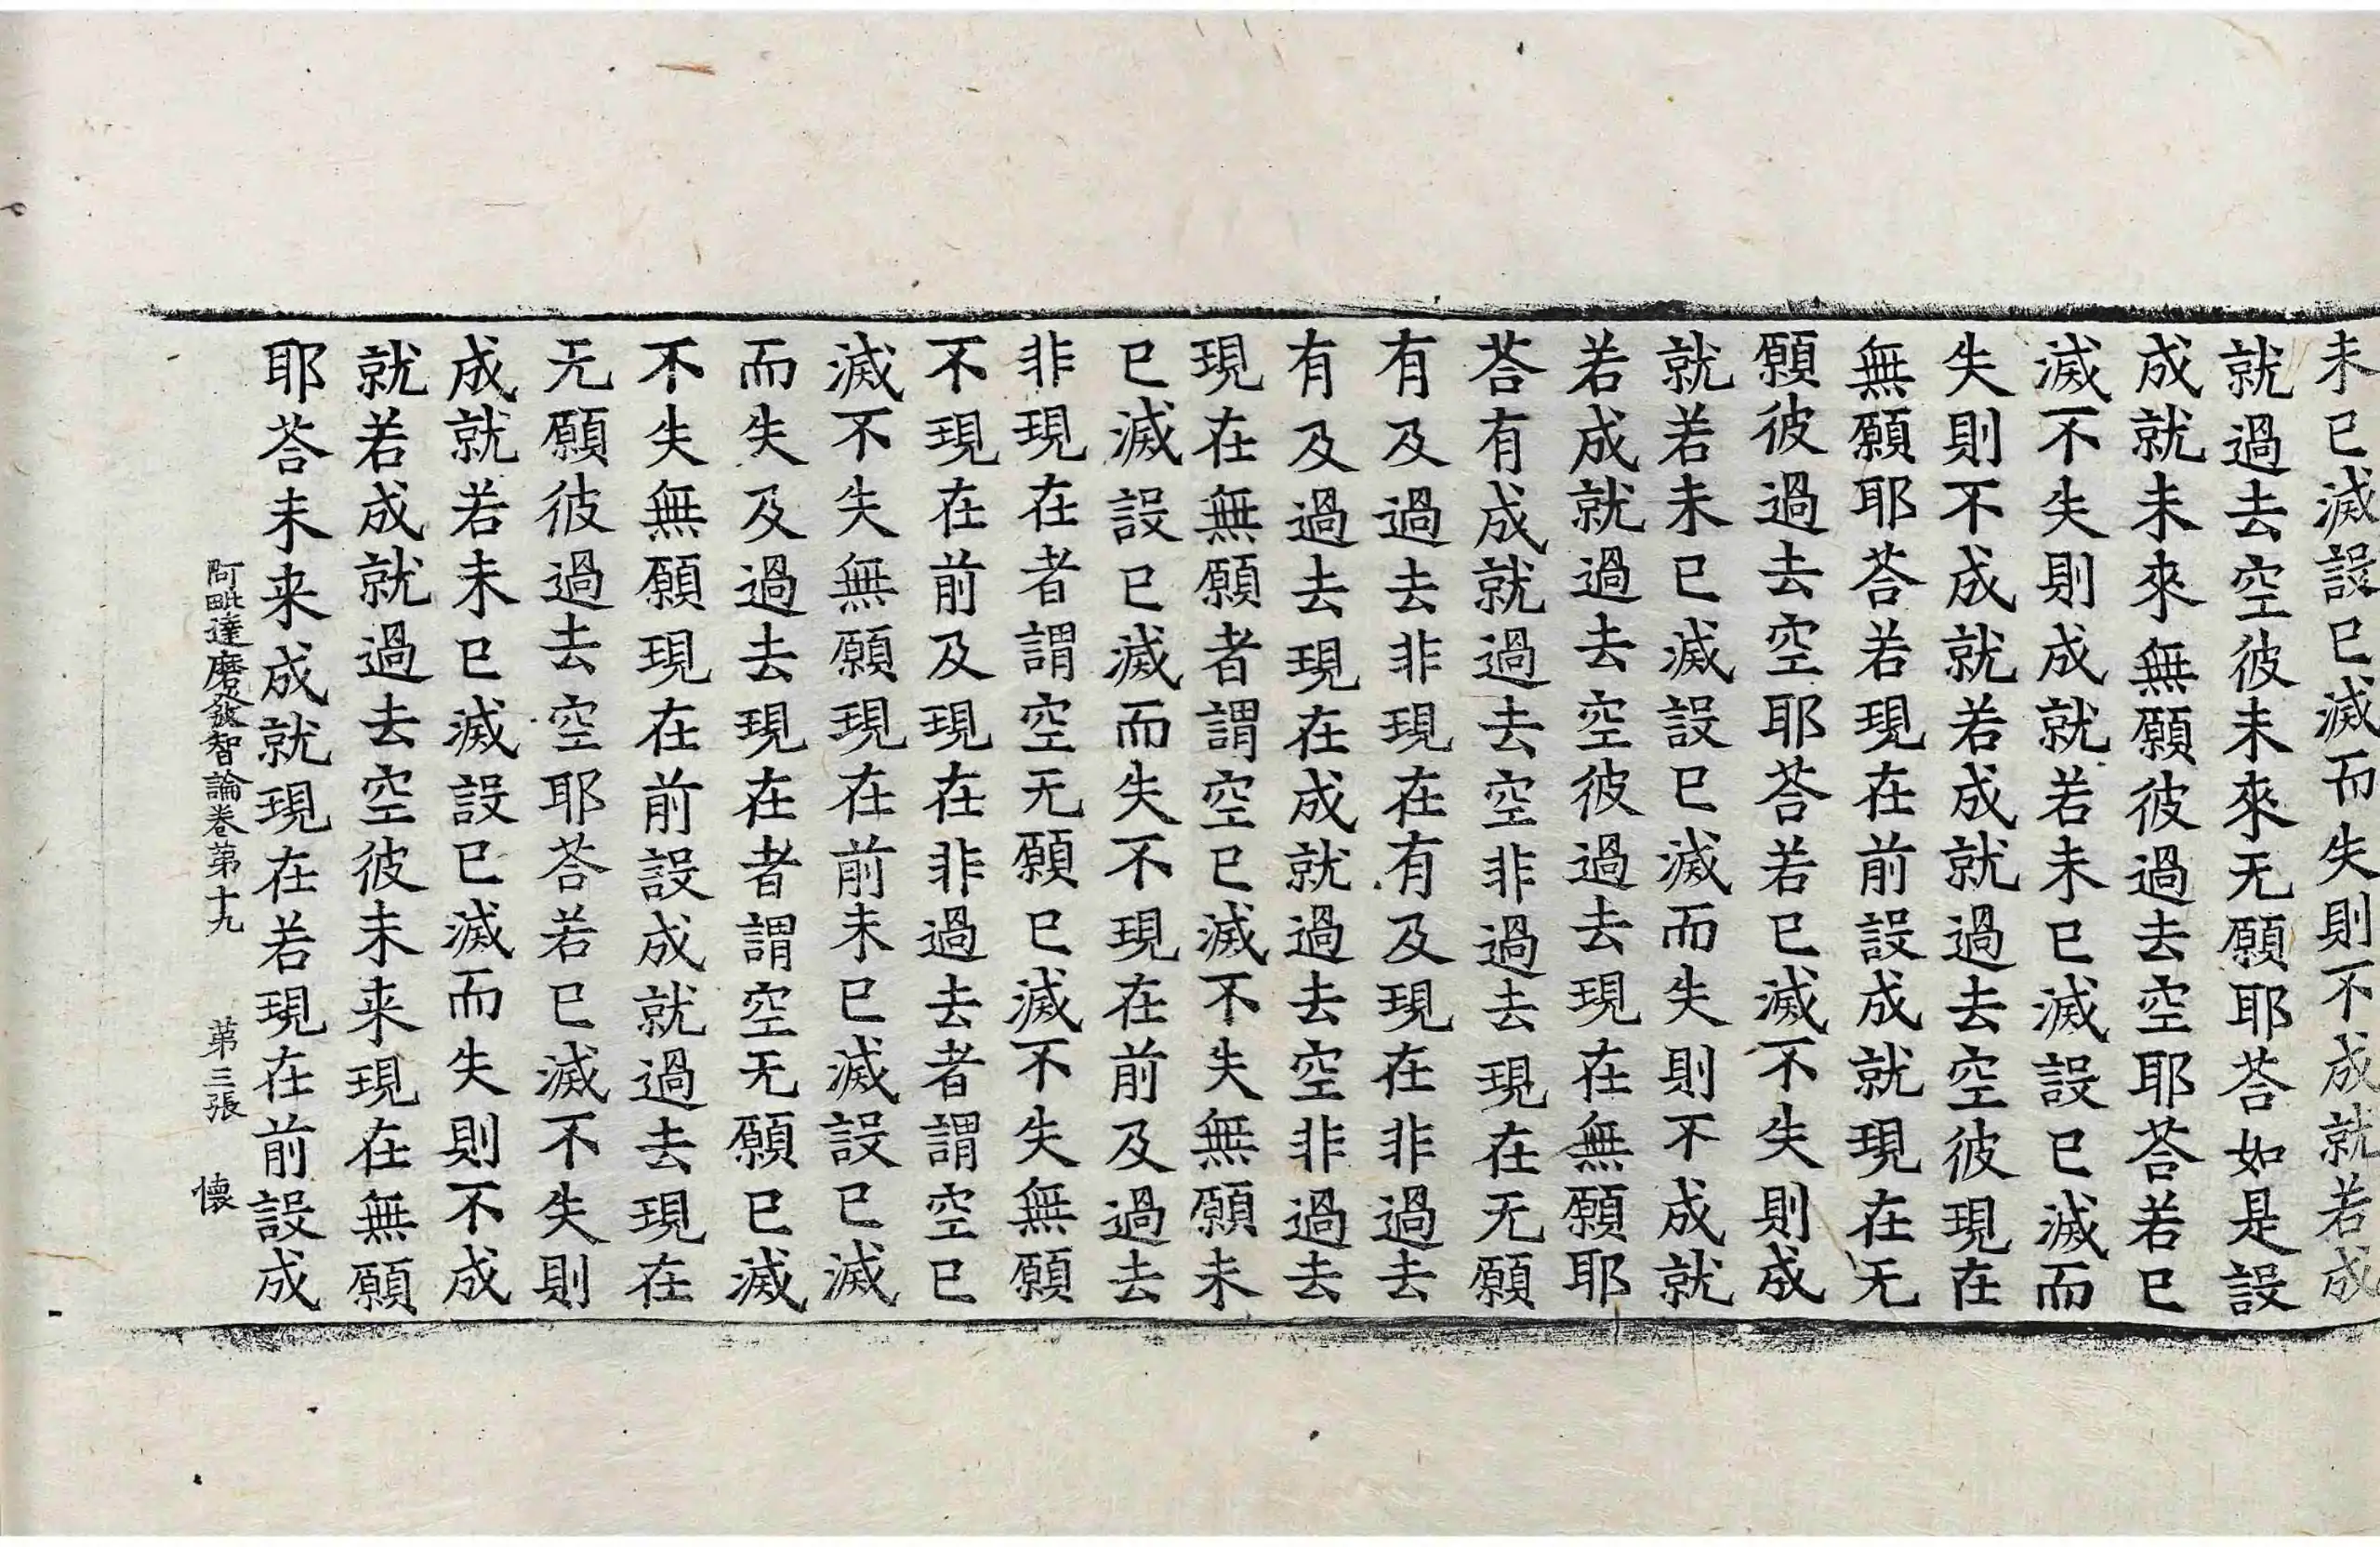 未已滅設已滅而失則不成就若成
就過去空彼未來无願耶荅如是設
成就未來無願彼過去空耶荅若已
滅不失則成就若未已滅設已滅而
失則不成就若成就過去空彼現在
無願耶荅若現在前設成就現在无
願彼過去空耶荅若已滅不失則成
就若未已滅設已滅而失則不成就
若成就過去空彼過去現在無願耶
荅有成就過去空非過去現在无願
有及過去非現在有及現在非過去
有及過去現在成就過去空非過去
現在無願者謂空已滅不失無願未
已滅設已滅而失不現在前及過去
非現在者謂空无願已滅不失無願
不現在前及現在非過去者謂空已
滅不失無願現在前未已滅設已滅
而失及過去現在者謂空无願已滅
不失無願現在前設成就過去現在
无願彼過去空耶荅若已滅不失則
成就若未已滅設已滅而失則不成
就若成就過去空彼未来現在無願
耶荅未来成就現在若現在前設成
阿毗達磨發智論卷第十九 第三張 懐